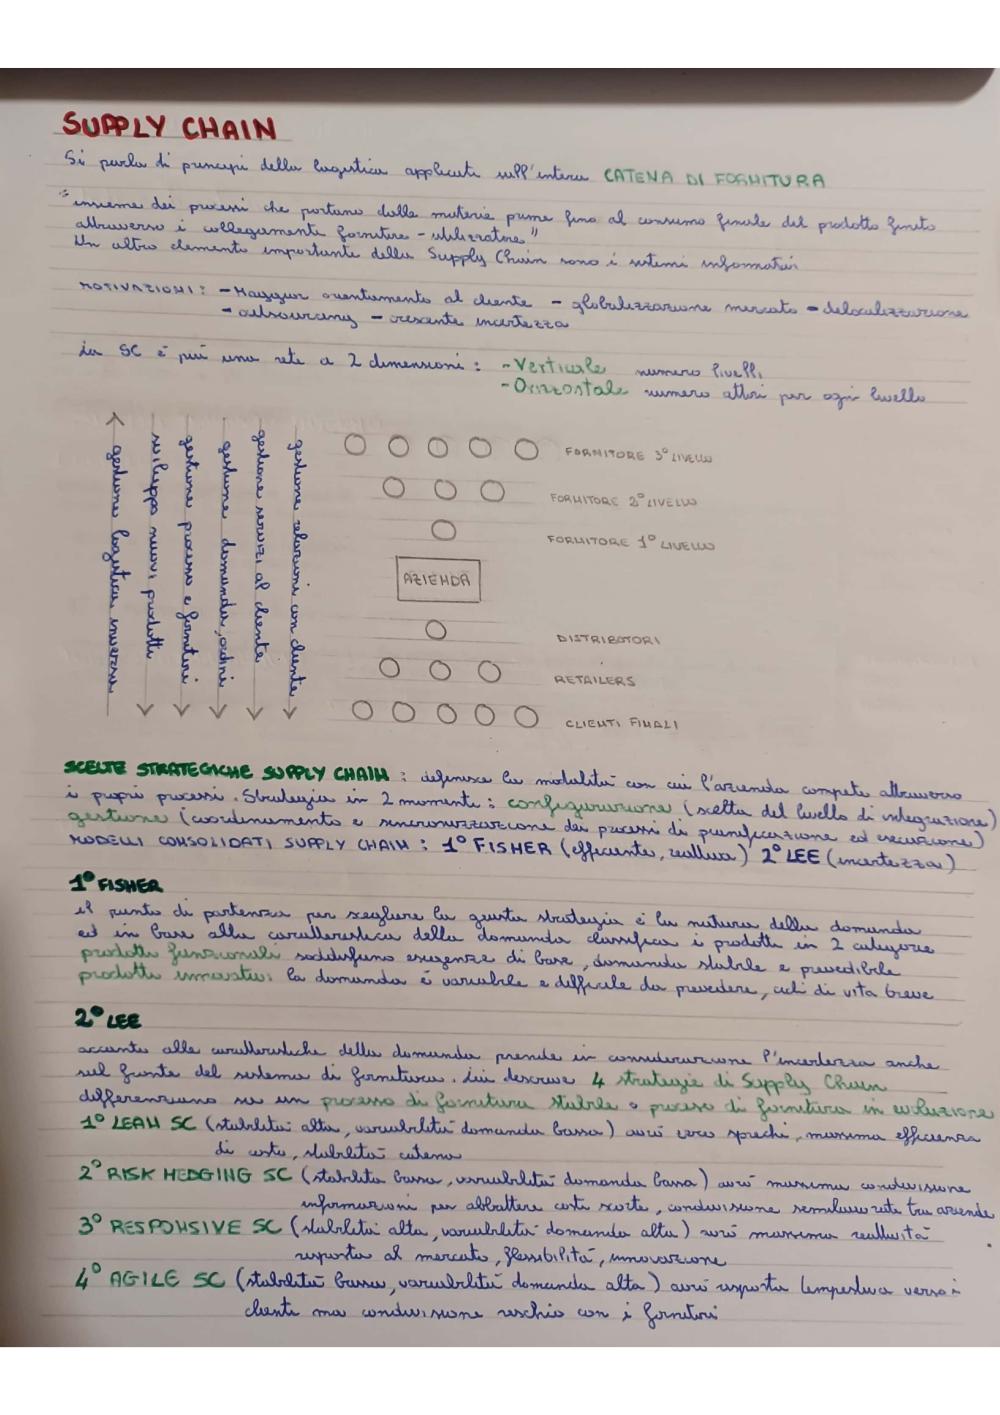 SUPPLY CHAIN
Si parla di principi della logistica applicati sull'intera CATENA DI FORNITURA
"insieme dei processi che portano dalla materie prime fino al consumo finale del prodotto finito
attraverso i collegamenti fornitore - utilizzatore"
Un altro elemento importante della Supply Chain sono i sistemi informativi
MOTIVAZIONI: - Maggior orientamento al cliente - globalizzazione mercato - delocalizzazione
- outsourcing - crescente incertezza
La SC è più una rete a 2 dimensioni: - Verticale numero livelli
- Orizzontale numero attori per ogni livello
gestione logistica inversa
sviluppo nuovi prodotti
gestione processo e fornitori
gestione domanda, ordini
gestione servizi al cliente
gestione relazioni con cliente
FORNITORE 3° LIVELLO
FORNITORE 2° LIVELLO
FORNITORE 1° LIVELLO
AZIENDA
DISTRIBUTORI
RETAILERS
CLIENTI FINALI
SCELTE STRATEGICHE SUPPLY CHAIN: definisce la modalità con cui l'azienda compete attraverso
i propri processi. Strategia in 2 momenti: configurazione (scelta del livello di integrazione)
gestione (coordinamento e sincronizzazione dei processi di pianificazione ed esecuzione)
MODELLI CONSOLIDATI SUPPLY CHAIN: 1° FISHER (efficiente, reattiva) 2° LEE (incertezza)
1° FISHER
il punto di partenza per scegliere la giusta strategia è la natura della domanda
ed in base alla caratteristica della domanda classifica i prodotti in 2 categorie
prodotti funzionali soddisfano esigenze di base, domanda stabile e prevedibile
prodotti innovativi la domanda è variabile e difficile da prevedere, cicli di vita breve
2° LEE
accanto alle caratteristiche della domanda prende in considerazione l'incertezza anche
sul fronte del sistema di fornitura. Lui descrive 4 strategie di Supply Chain
differenziano su un processo di fornitura stabile o processo di fornitura in evoluzione
1° LEAN SC (stabilità alta, variabilità domanda bassa) avrò zero sprechi, massima efficienza
di costo, stabilità catena
2° RISK HEDGING SC (stabilità bassa, variabilità domanda bassa) avrò massima condivisione
informazioni per abbattere costi scorte, condivisione tra aziende
3° RESPONSIVE SC (stabilità alta, variabilità domanda alta) avrò massima reattività
risposta al mercato, flessibilità, innovazione
4° AGILE SC (stabilità bassa, variabilità domanda alta) avrò risposta tempestiva verso i
clienti ma condivisione rischio con i fornitori